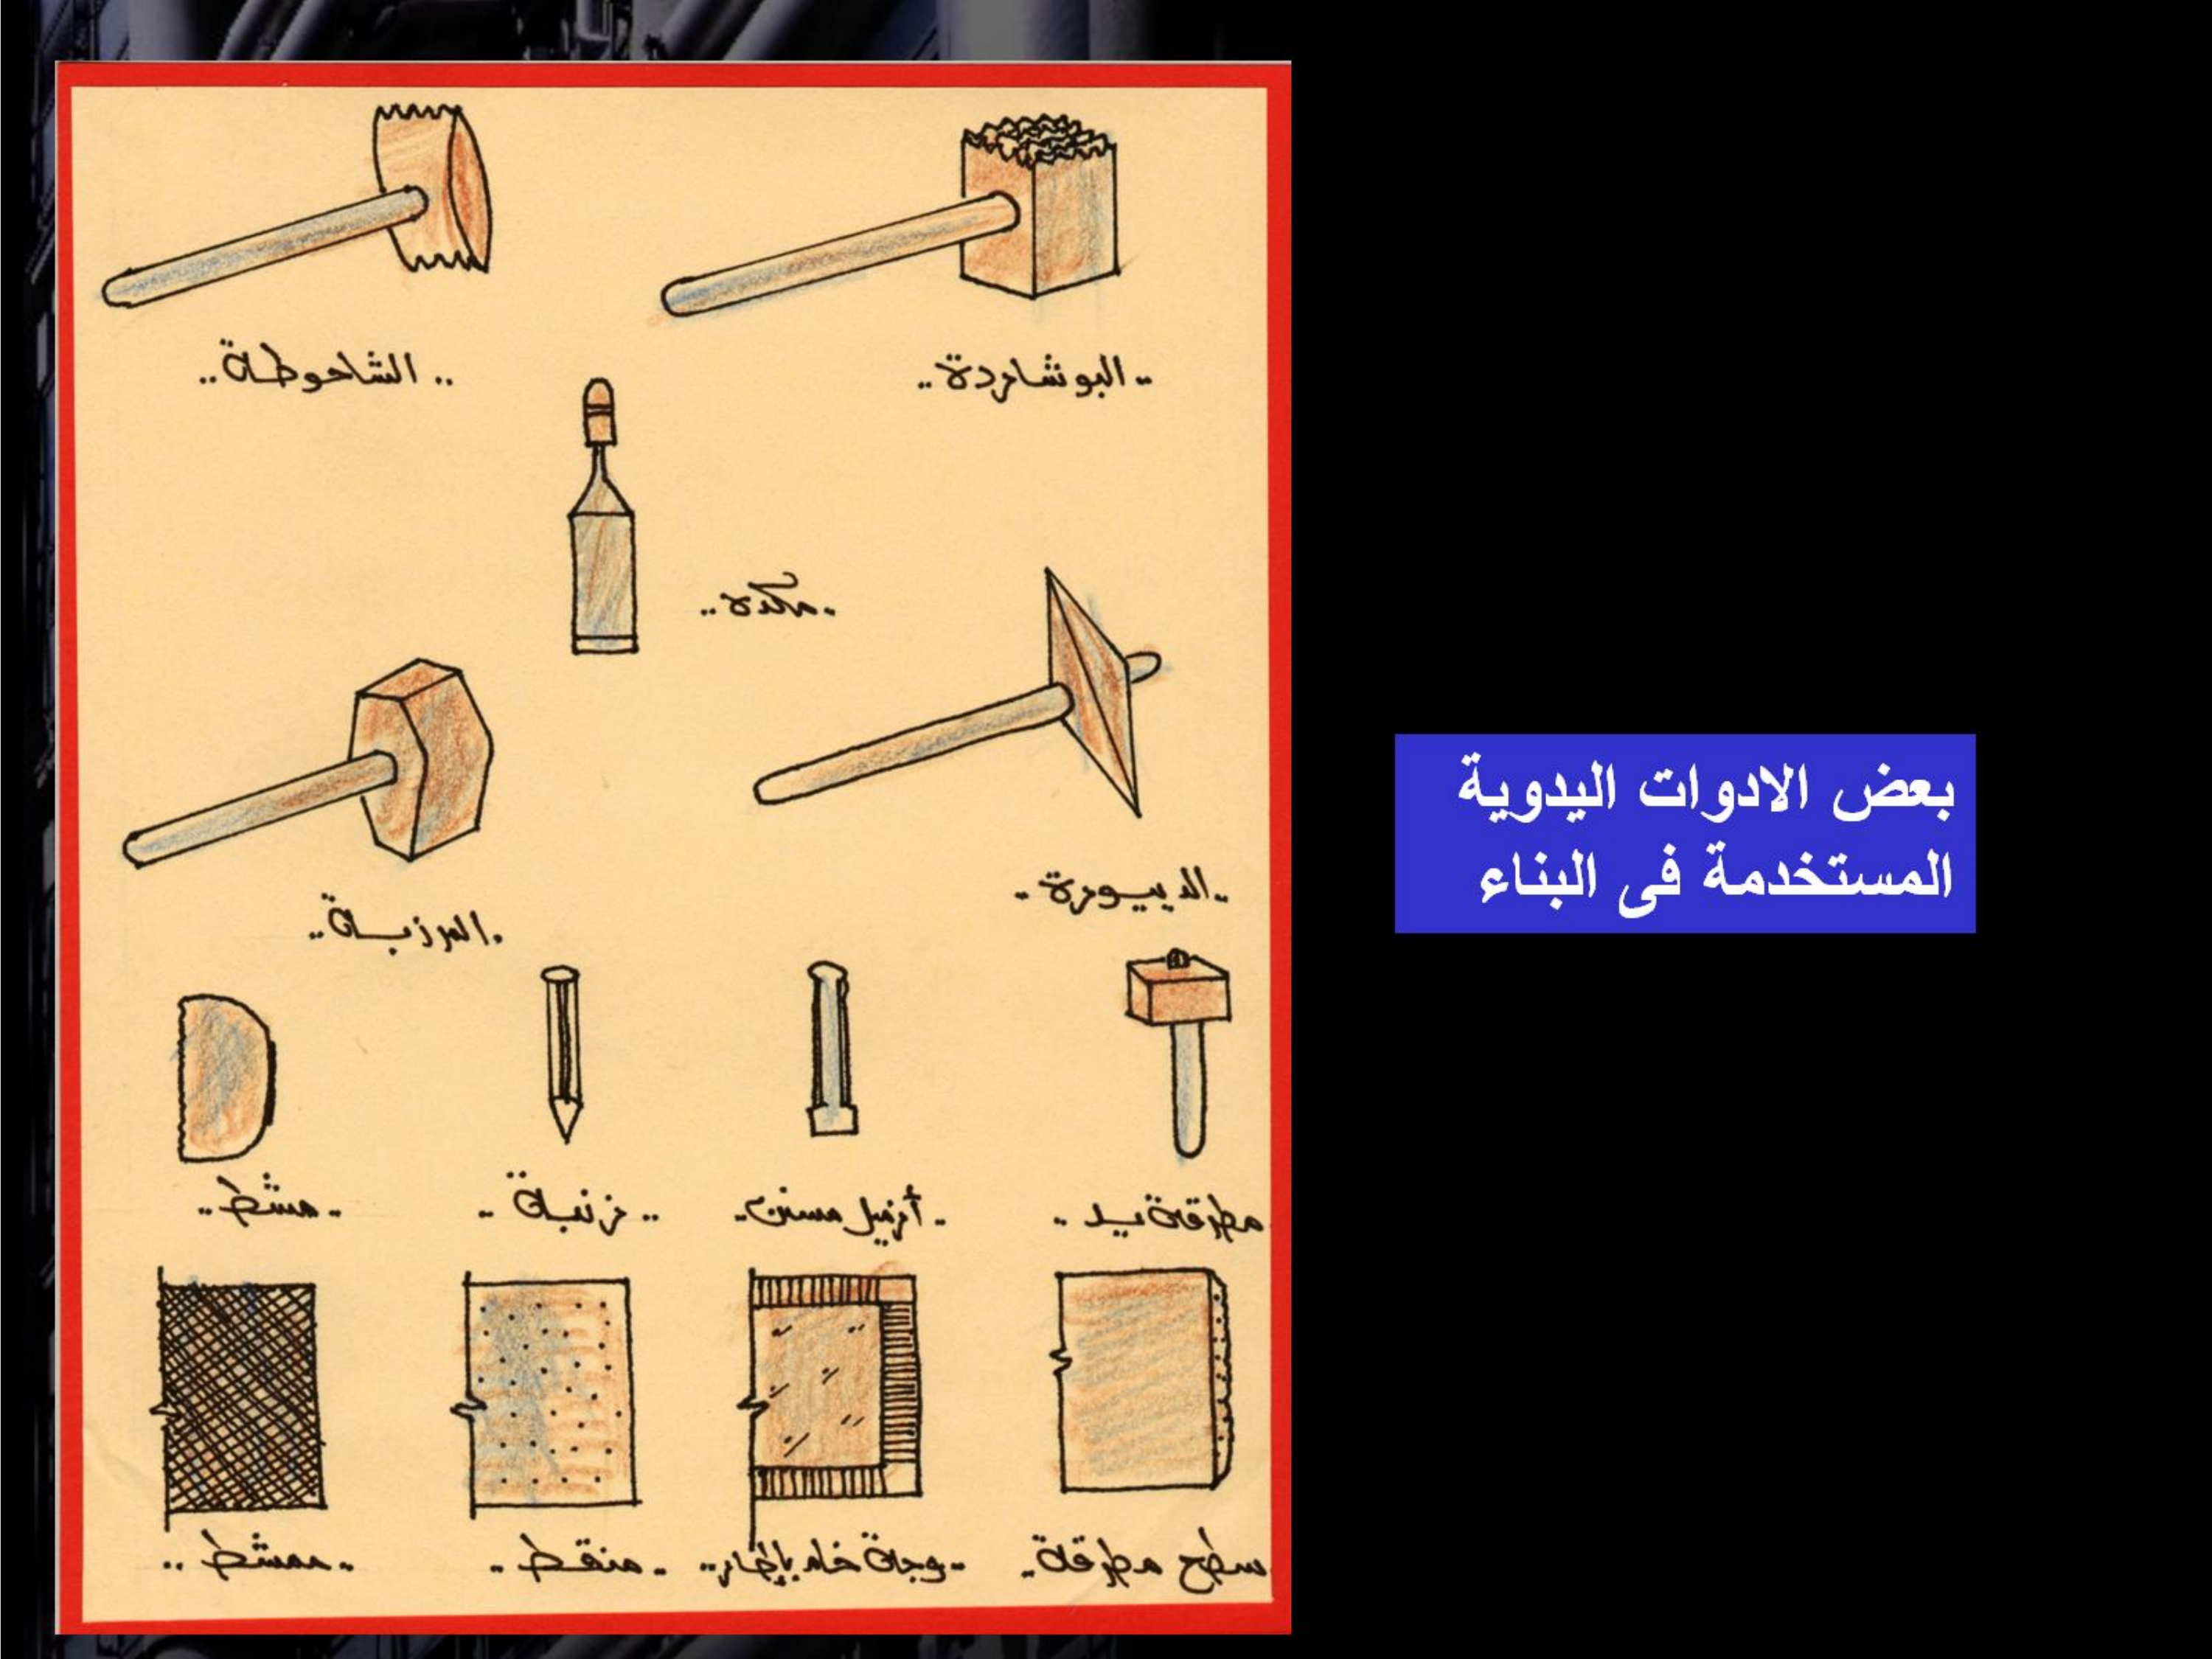 البوشاردة
الشاحوطة
مكدة
الدبورة
المرزبة
مطرقة يد
أزميل مسنن
زنبة
مشط
سطح مطرقة
وجة خام بإطار
منقط
ممشط
بعض الادوات اليدوية
المستخدمة فى البناء